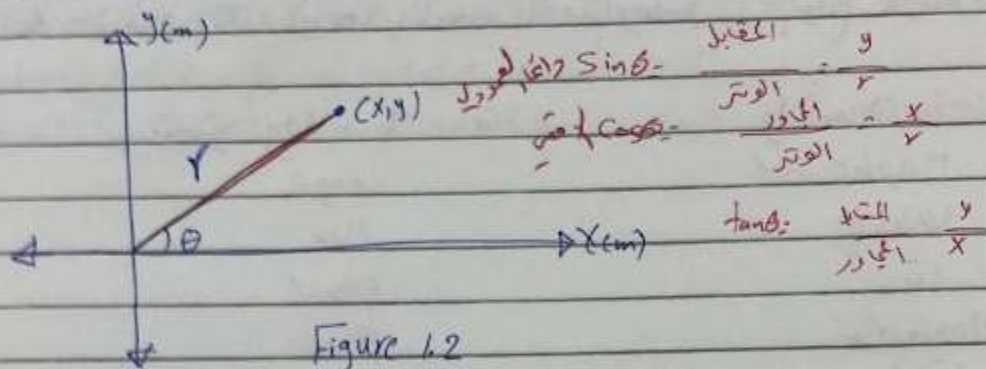 y(m)
(x,y)
r
θ
X(m)
Figure 1.2
Sinθ = المقابل / الوتر = y / r
Cosθ = المجاور / الوتر = x / r
tanθ = المقابل / المجاور y / x